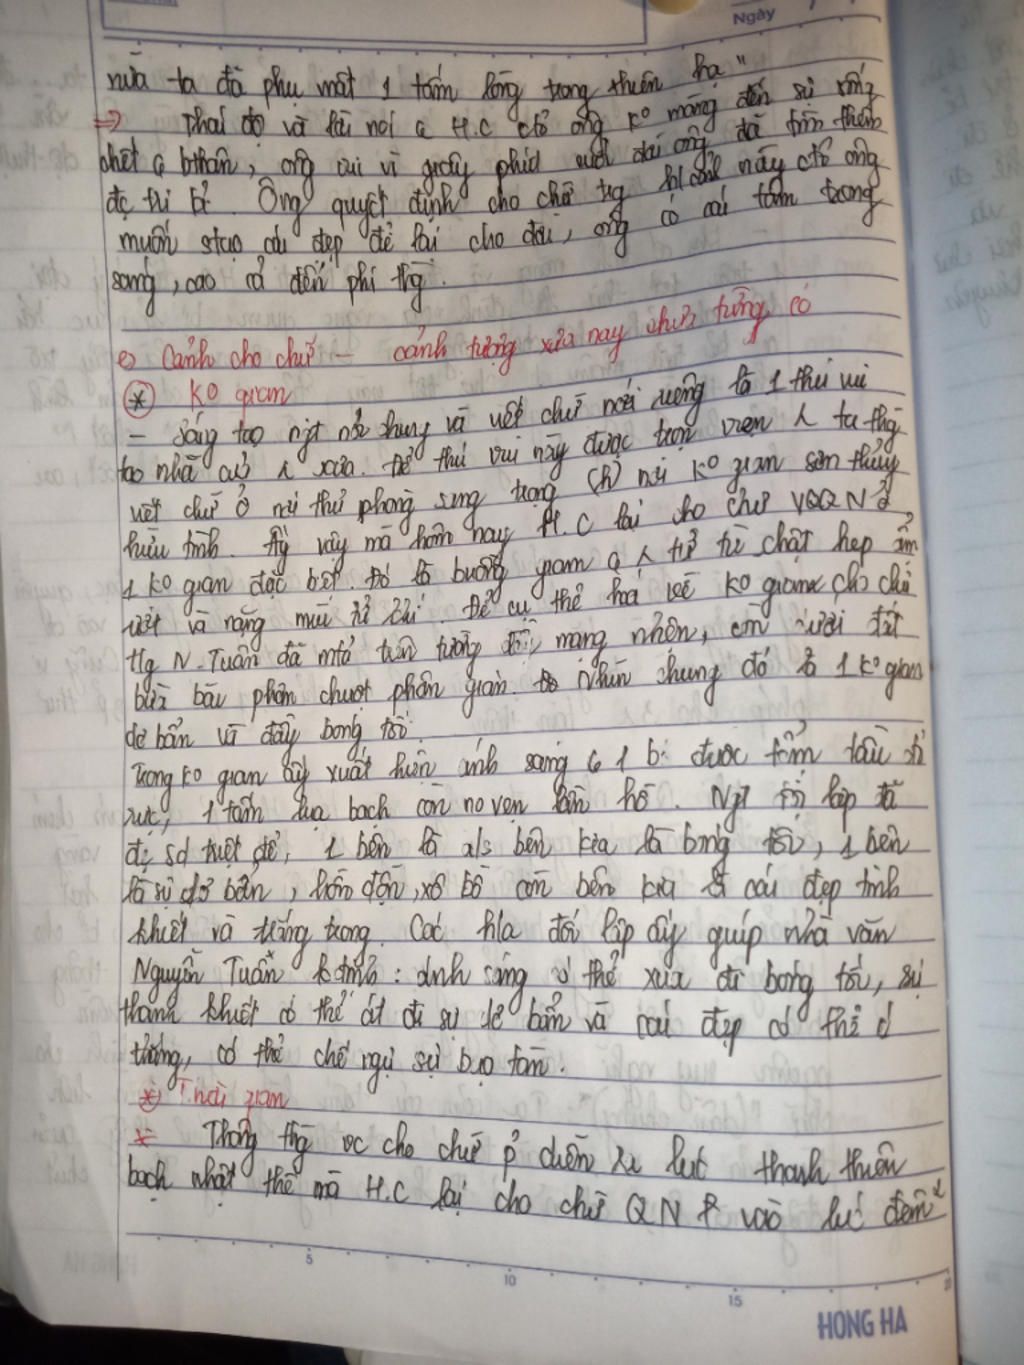 Ngày
nữa ta đã phụ mất 1 tấm lòng trong thiên hạ"
=> Thái độ và lời nói of H.C c/tỏ ông ko màng đến sự sống
chết of bthân, ông vui vì giây phút cuối đời ông đã tìm thêm
đc tri kỉ. Ông quyết định cho chữ tg h/cảnh này c/tỏ ông
muốn stạo cái đẹp để lại cho đời, ông có cái tâm trong
sáng, cao cả đến phi thg.
e) Cảnh cho chữ - cảnh tượng xưa nay chưa từng có
* Ko gian
- Sáng tạo ngt nói chung và viết chữ nói riêng là 1 thú vui
tao nhã of xưa. Để thú vui này được trọn vẹn ta thg
viết chữ ở nơi thư phòng sang trọng (h) nơi ko gian sơn thủy
hữu tình. Ấy vậy mà hôm nay H.C lại cho chữ VQQN ở
1 ko gian đặc biệt. Đó là buồng giam of tử tù chật hẹp ẩm
ướt và nặng mùi tử khí. Để cụ thể hoá về ko gian cho chữ
ttg N.Tuân đã mtả trên tường đầy mạng nhện, còn dưới đất
bừa bãi phân chuột phân gián. Nhìn chung đó là 1 ko gian
dơ bẩn và đầy bóng tối.
Trong ko gian ấy xuất hiện ánh sáng of 1 bó đuốc tẩm dầu
rực, 1 tấm lụa bạch còn nguyên vẹn lần hồ. Ngt đối lập đã
đc sd triệt để, 1 bên là a/s bên kia là bóng tối, 1 bên
là sự dơ bẩn, hỗn độn, xô bồ còn bên kia là cái đẹp tinh
khiết và trắng trong. Các h/a đối lập ấy giúp nhà văn
Nguyễn Tuân k định: ánh sáng có thể xua đi bóng tối, sự
thanh khiết có thể át đi sự dơ bẩn và cái đẹp có thể c
thắng, có thể chế ngự sự bạo tàn.
* Thời gian
* Thông thg vc cho chữ diễn ra lúc thanh thiên
bạch nhật thế mà H.C lại cho chữ QN vào lúc đêm
5
10
15
HONG HA